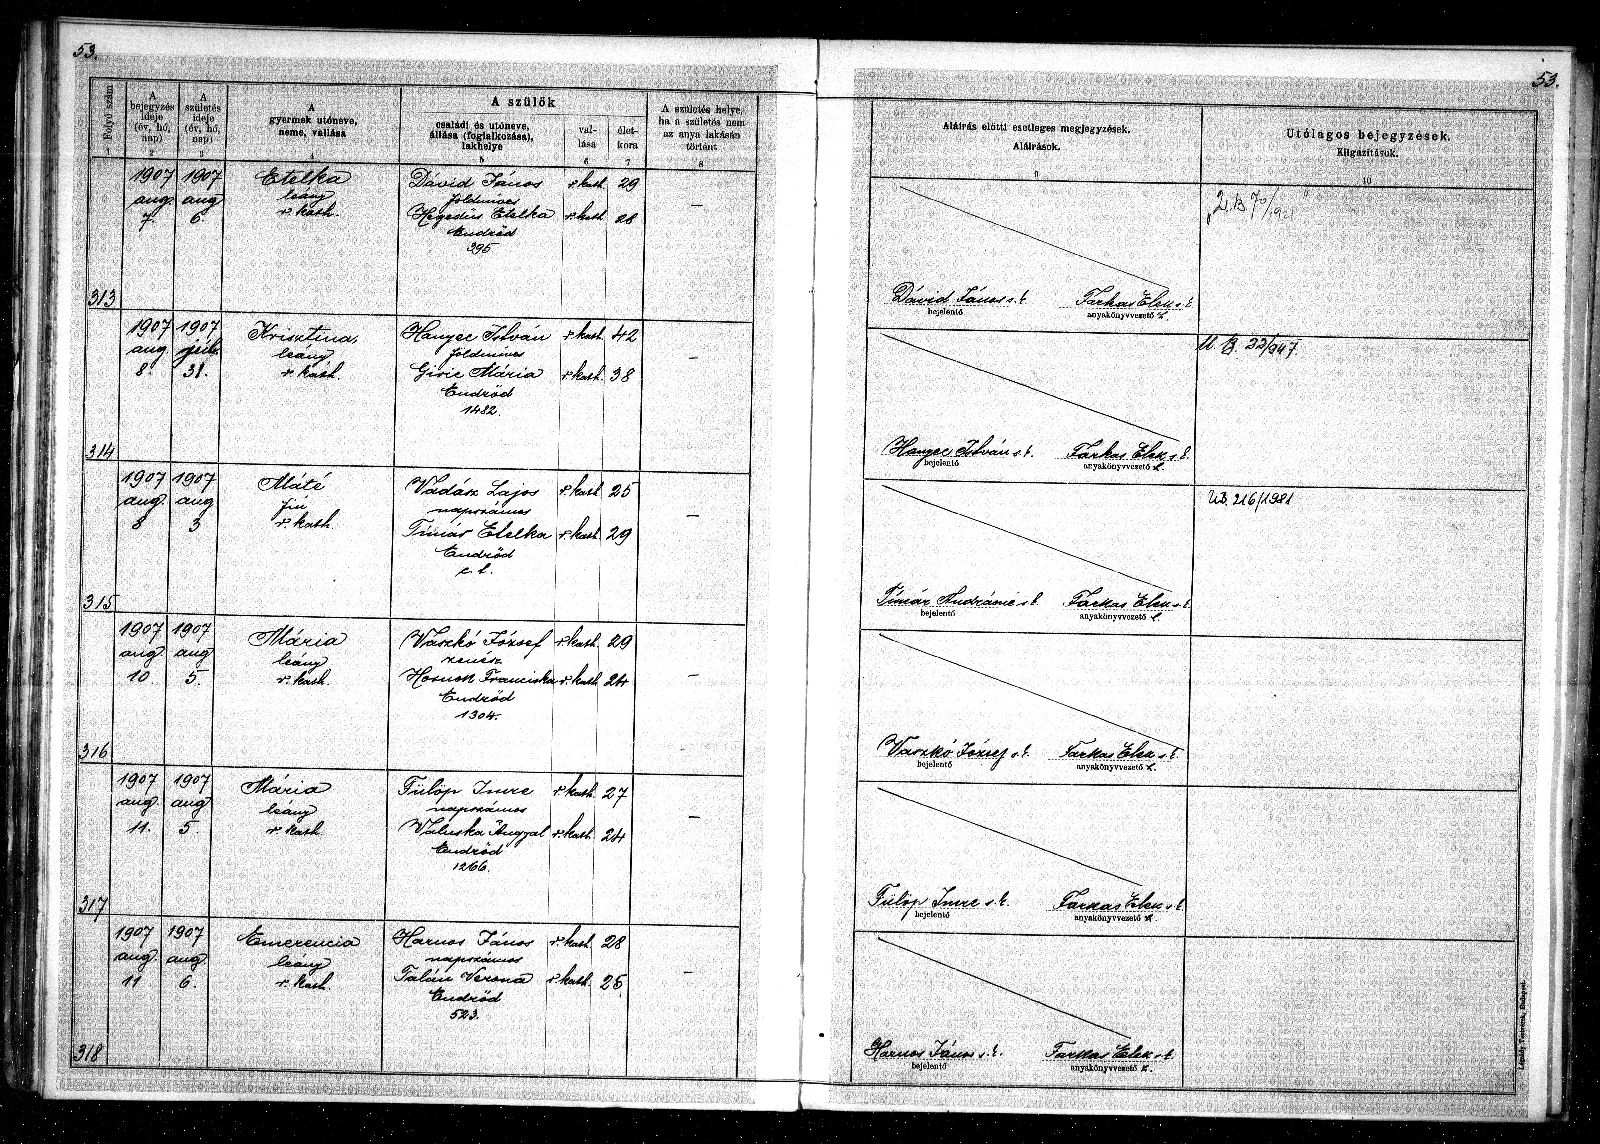 53.
Folyó szám
A bejegyzés ideje (év, hó, nap)
A születés ideje (év, hó, nap)
A gyermek utóneve, neme, vallása
A szülők
családi és utóneve, állása (foglalkozása), lakhelye
vallása
életkora
A születés helye, ha a születés nem az anya lakásán történt
1 2 3 4 5 6 7 8
1907 1907 Etelka Dávid János r. kath. 29
aug. aug leány földmíves
7. 6. r. kath. Hegedüs Etelka r. kath 28 —
Endrőd
395
313
1907 1907 Krisztina Hanyec István r. kath. 42
aug. júl. leány földmíves
8. 31. r. kath. Giric Mária r. kath. 38 —
Endrőd
1482.
314
1907 1907 Máté Vadász Lajos r. kath 25
aug. aug fiú napszámos
8 3 r. kath. Tímár Etelka r. kath. 29 —
Endrőd
315
1907 1907 Mária Vaszkó József r. kath. 29
aug aug leány zenész
10. 5. r. kath. Franciska r. kath 24 —
Endrőd
1304.
316
1907 1907 Mária Fülöp Imre r. kath. 27
aug. aug leány napszámos
11. 5. r. kath. Valuska Angyal r. kath. 24 —
Endrőd
1266.
317
1907 1907 Emerencia Harnos János r. kath. 28
aug. aug leány napszámos
11 6. r. kath. Talán Verona r. kath. 25 —
Endrőd
523.
318
53.
Aláírás előtti esetleges megjegyzések.
Aláírások.
Utólagos bejegyzések.
Kiigazítások.
9 10
Dávid János s. k. Farkas Elek s. k.
bejelentő anyakönyvvezető
U. B. 22/947
Hanyec István s. k. Farkas Elek s. k.
bejelentő anyakönyvvezető
U.B. 216/1981
Tímár Andrásné s. k. Farkas Elek s. k.
bejelentő anyakönyvvezető
Vaszkó József s. k. Farkas Elek s. k.
bejelentő anyakönyvvezető
Fülöp Imre s. k. Farkas Elek s. k.
bejelentő anyakönyvvezető
Harnos János s. k. Farkas Elek s. k.
bejelentő anyakönyvvezető